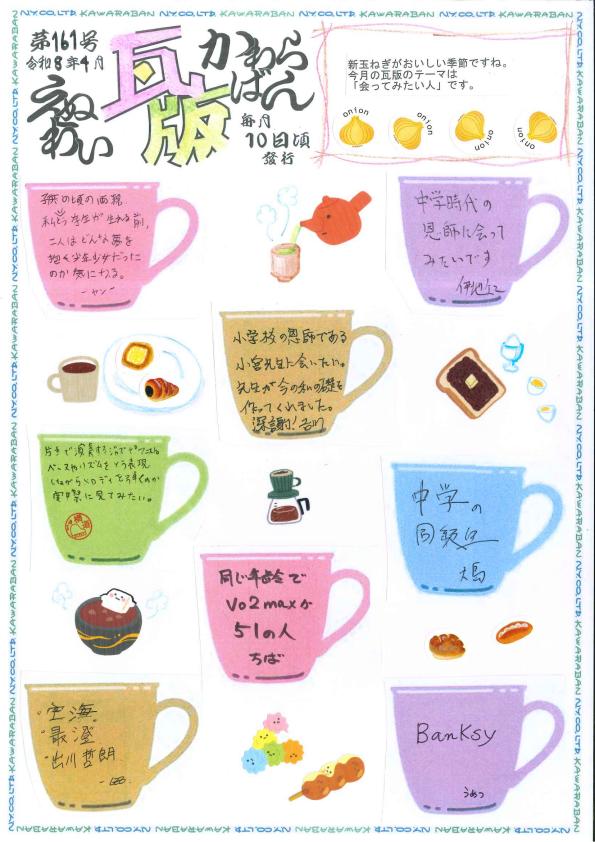 第161号
令和8年4月
えぬ
わい
瓦版
かわら
ばん
毎月
10日頃
発行
新玉ねぎがおいしい季節ですね。
今月の瓦版のテーマは
「会ってみたい人」です。
onion
onion
onion
onion
子供の頃の両親
私と弟が生れる前、
二人はどんな夢を
抱く少年少女だった
のか気になる。
－ヤン－
中学時代の
恩師に会って
みたいです
小学校の恩師である
小宮先生に会いたい。
先生が今の私の礎を
作ってくれました。
深謝!
片手で演奏する
ベースやリズムをどう表現
しながらメロディを弾くのか
実際に見てみたい。
中学の
同級生
同じ年齢で
Vo2maxが
51の人
ちば
・空海
・最澄
・出川哲朗
Banksy
うめつ
N.Y.CO.,LTD. KAWARABAN